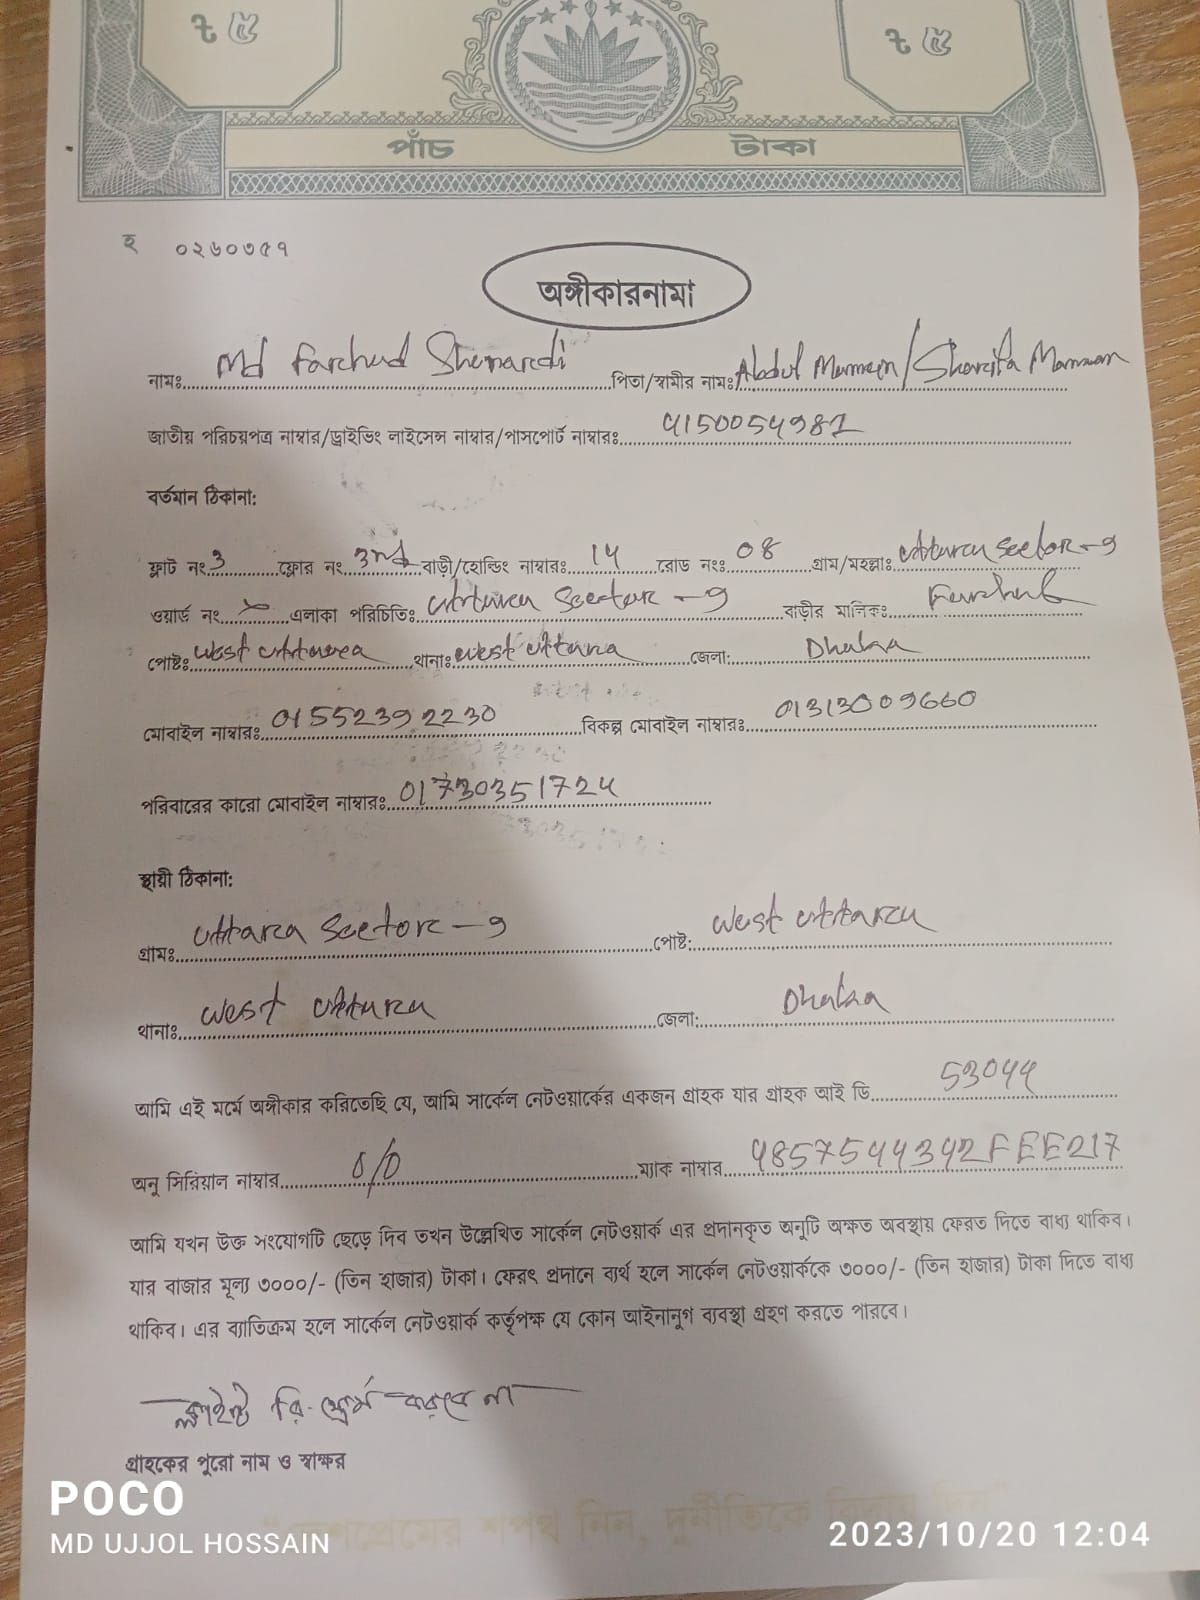 ৳ ৫ ৳ ৫
পাঁচ টাকা
হ ০২৬০৩৫৭
অঙ্গীকারনামা
নামঃ Md Farchud পিতা/স্বামীর নামঃ Abdul
জাতীয় পরিচয়পত্র নাম্বার/ড্রাইভিং লাইসেন্স নাম্বার/পাসপোর্ট নাম্বারঃ
বর্তমান ঠিকানা:
ফ্লাট নং 3 ফ্লোর নং 3rd বাড়ী/হোল্ডিং নাম্বারঃ 14 রোড নংঃ 08 গ্রাম/মহল্লাঃ Uttara Sector-9
ওয়ার্ড নং এলাকা পরিচিতিঃ Uttara Sector-9 বাড়ীর মালিকঃ
পোষ্টঃ West Uttara থানাঃ West Uttara জেলা: Dhaka
মোবাইল নাম্বারঃ 01552392230 বিকল্প মোবাইল নাম্বারঃ 01313009660
পরিবারের কারো মোবাইল নাম্বারঃ 01730351724
স্থায়ী ঠিকানা:
গ্রামঃ Uttara Sector-9 পোষ্ট: West Uttara
থানাঃ West Uttara জেলা: Dhaka
আমি এই মর্মে অঙ্গীকার করিতেছি যে, আমি সার্কেল নেটওয়ার্কের একজন গ্রাহক যার গ্রাহক আই ডি
অনু সিরিয়াল নাম্বার ম্যাক নাম্বার
আমি যখন উক্ত সংযোগটি ছেড়ে দিব তখন উল্লেখিত সার্কেল নেটওয়ার্ক এর প্রদানকৃত অনুটি অক্ষত অবস্থায় ফেরত দিতে বাধ্য থাকিব।
যার বাজার মূল্য ৩০০০/- (তিন হাজার) টাকা। ফেরৎ প্রদানে ব্যর্থ হলে সার্কেল নেটওয়ার্ককে ৩০০০/- (তিন হাজার) টাকা দিতে বাধ্য
থাকিব। এর ব্যাতিক্রম হলে সার্কেল নেটওয়ার্ক কর্তৃপক্ষ যে কোন আইনানুগ ব্যবস্থা গ্রহণ করতে পারবে।
করবে না
গ্রাহকের পুরো নাম ও স্বাক্ষর
"দেশপ্রেমের শপথ নিন, দুর্নীতিকে বিদায় দিন"
POCO
MD UJJOL HOSSAIN 2023/10/20 12:04